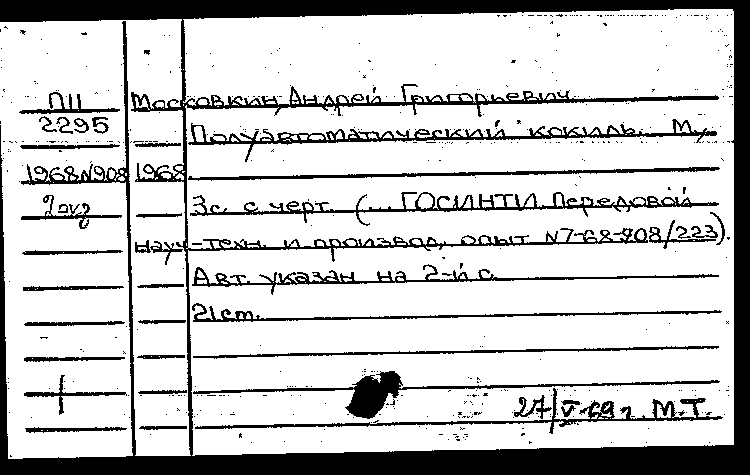 П11 Московкин, Андрей Григорьевич
2295 Полуавтоматический кокиль. М.,
1968 N908 1968.
3с. с черт. (... ГОСИНТИ. Передовой
науч.-техн. и производ. опыт N7-68-908/223).
Авт. указан на 2-й с.
21 cm.
27/V-69 г. М.Т.